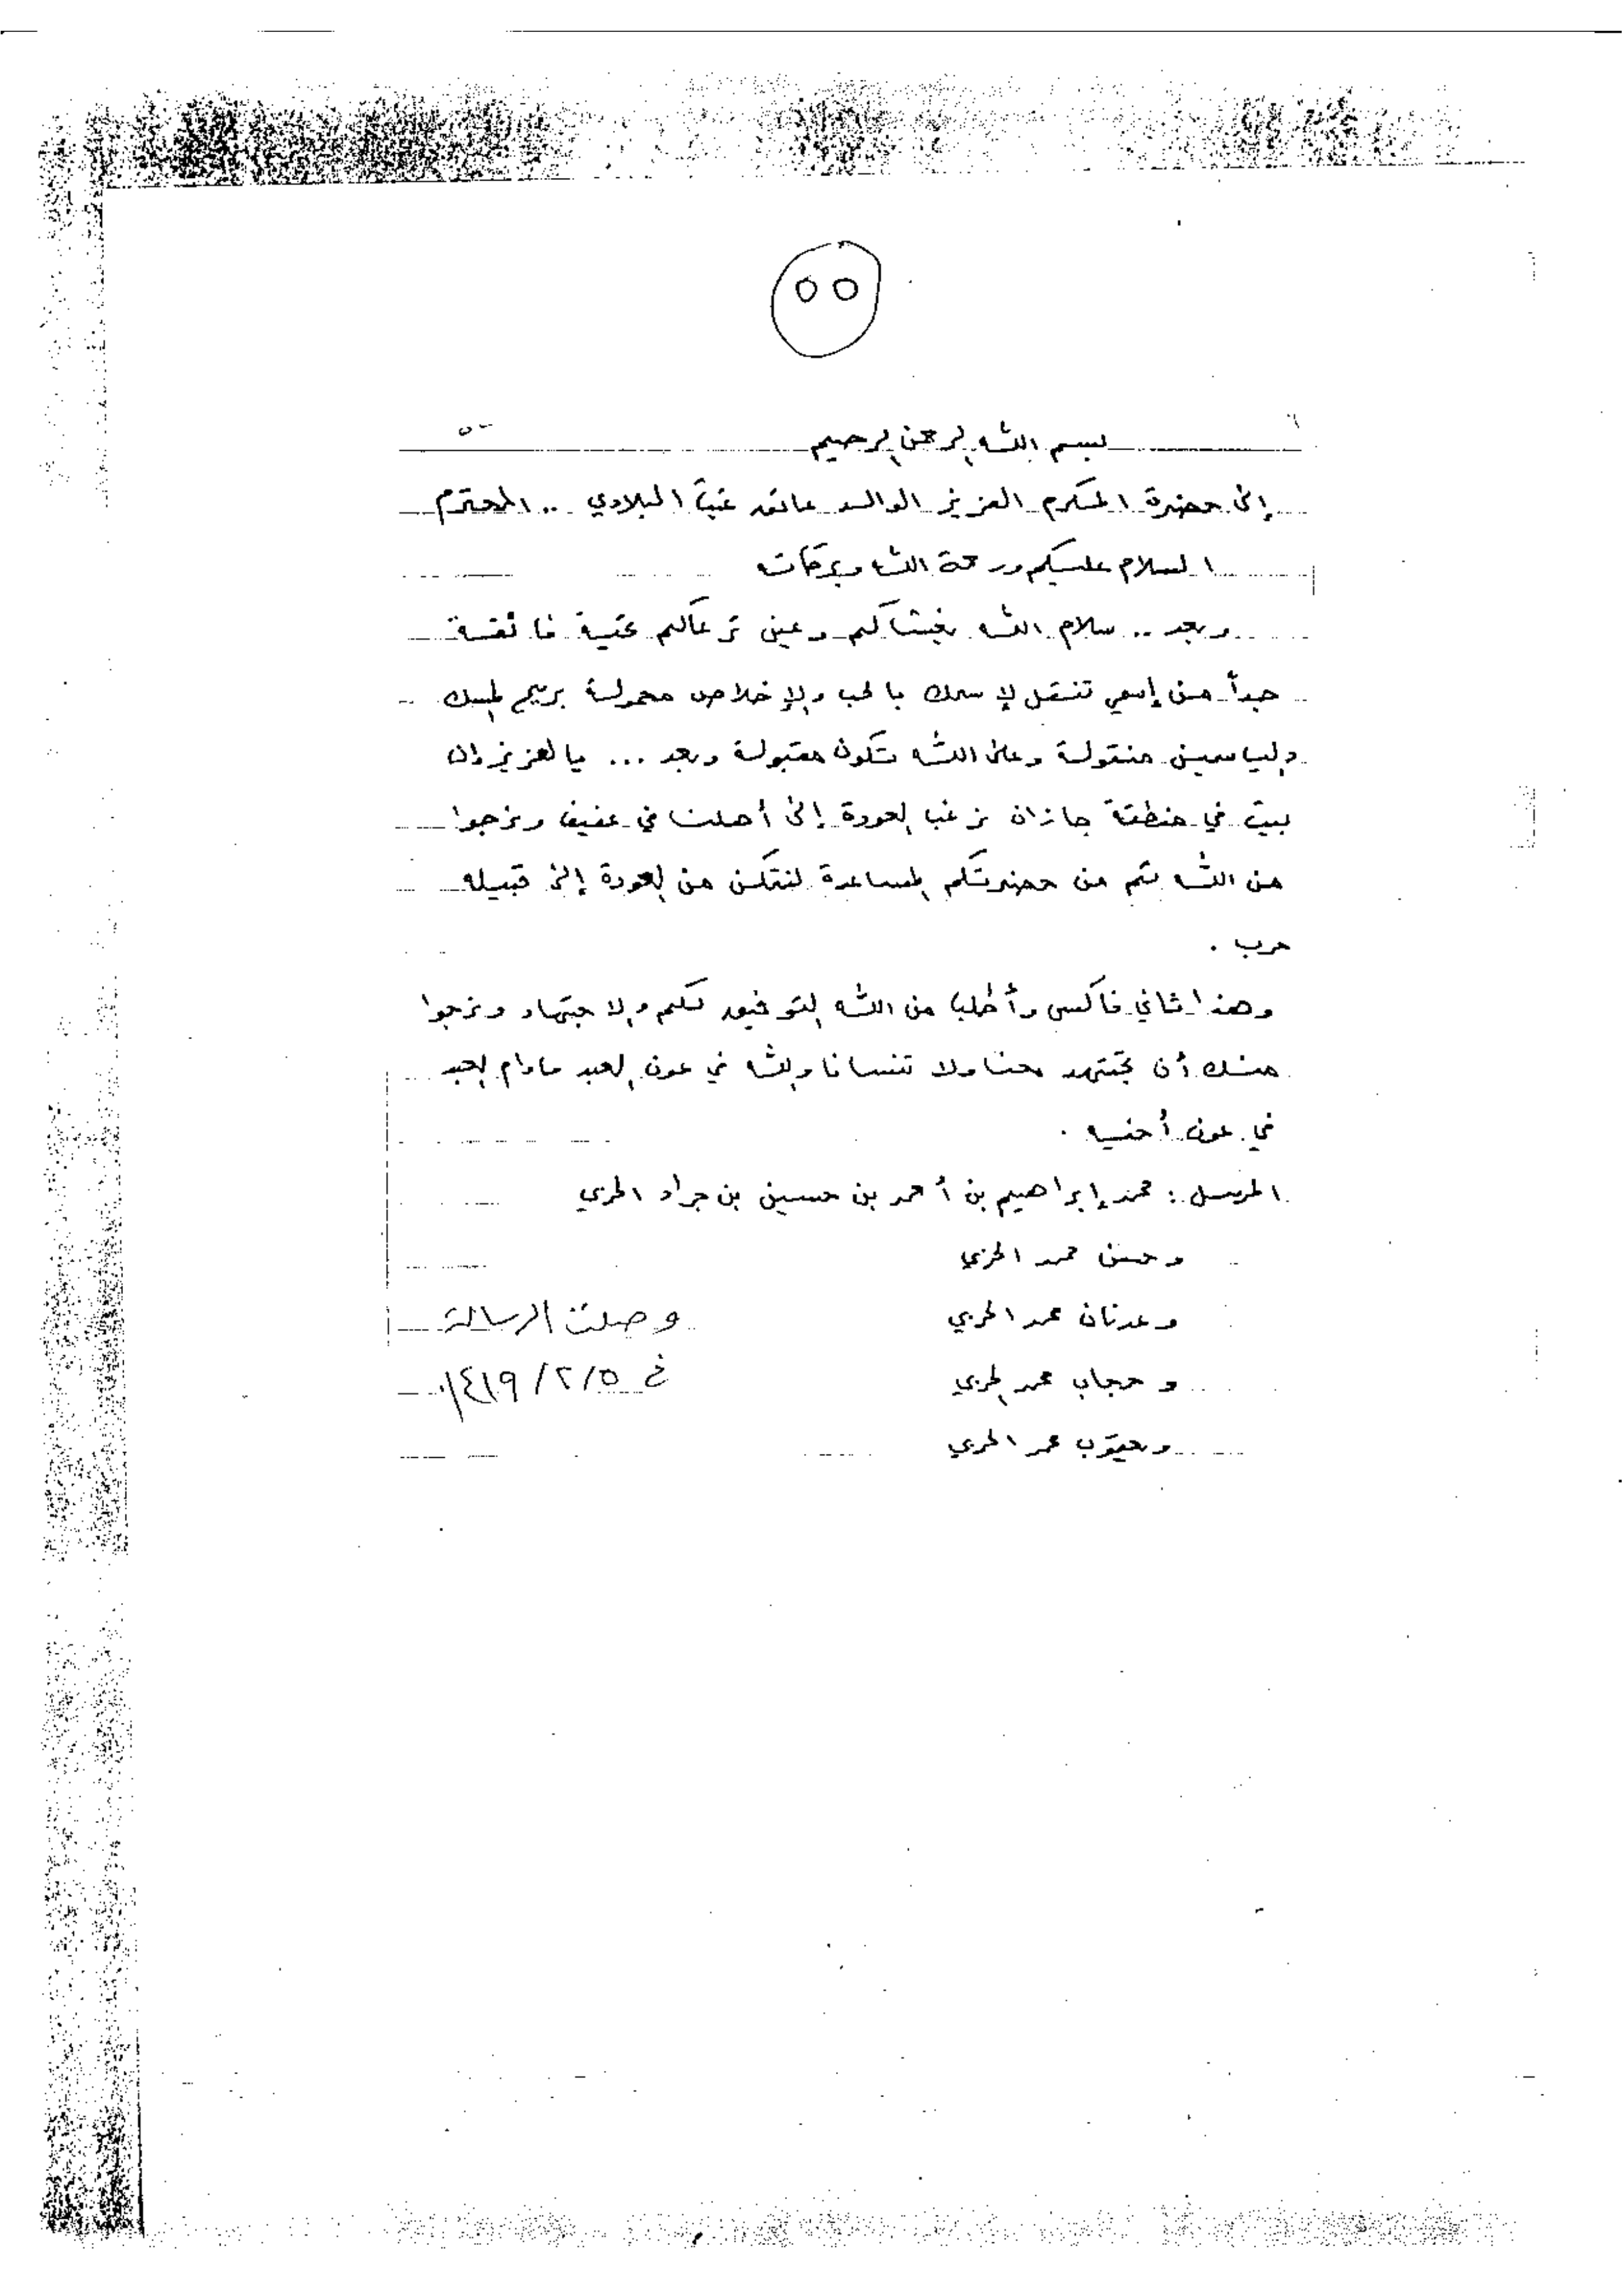 ٥٥
بسم الله الرحمن الرحيم
إلى حضرة المكرم العزيز الوالد عاتق غيث البلادي .. المحترم
السلام عليكم ورحمة الله وبركاته
وبعد .. سلام الله يغشاكم وعين ترعاكم تحية فائقة
جداً من إسمي تنتقل لإسمك بالحب والإخلاص محمولة بريح المسك
والياسمين منقولة وعلى الله تكون مقبولة وبعد ... يا لعزيز إن
بيت في منطقة جازان نرغب العودة إلى أهلنا في عفيف ونرجوا
من الله ثم من حضرتكم المساعدة لنتمكن من العودة إلى قبيله
حرب .
وهذا ثاني فاكس وأطلب من الله التوفيق لكم والاجتهاد ونرجوا
منك أن تجتهد معنا ولا تنسانا والله في عون العبد مادام العبد
في عون أخيه .
المرسل : محمد إبراهيم بن أحمد بن حسين بن جراد الحربي
وحسن محمد الحربي
وعدنان محمد الحربي
وصلت الرسالة
و حجاب محمد الحربي
في ١٤١٩/٢/٥
ويعقوب محمد الحربي